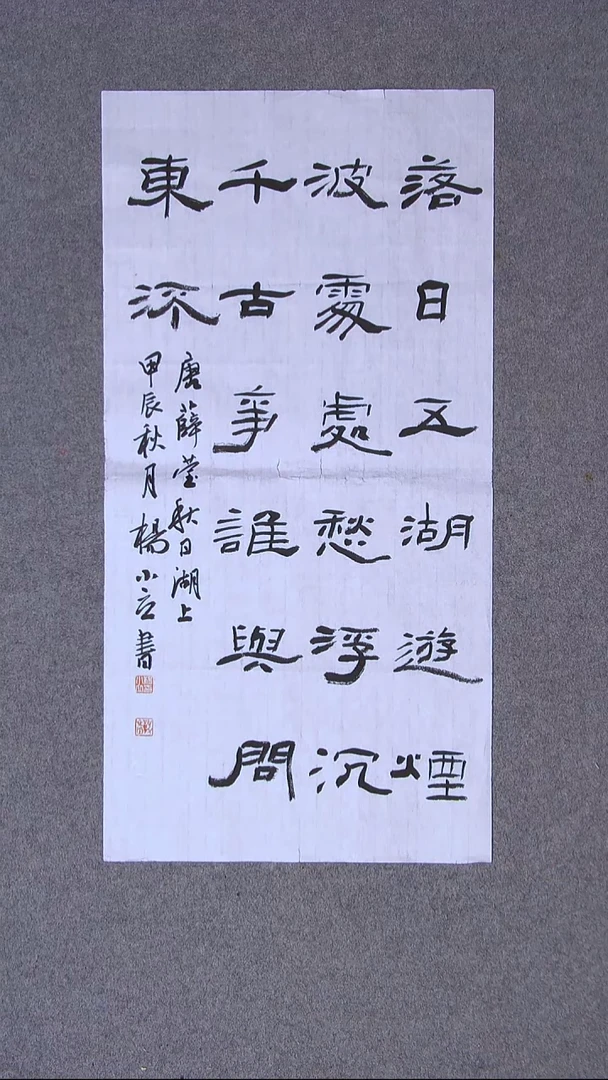 落日五湖遊煙
波處處愁浮沉
千古事誰與問
東流
唐薛莹秋日湖上
甲辰秋月楊小立書